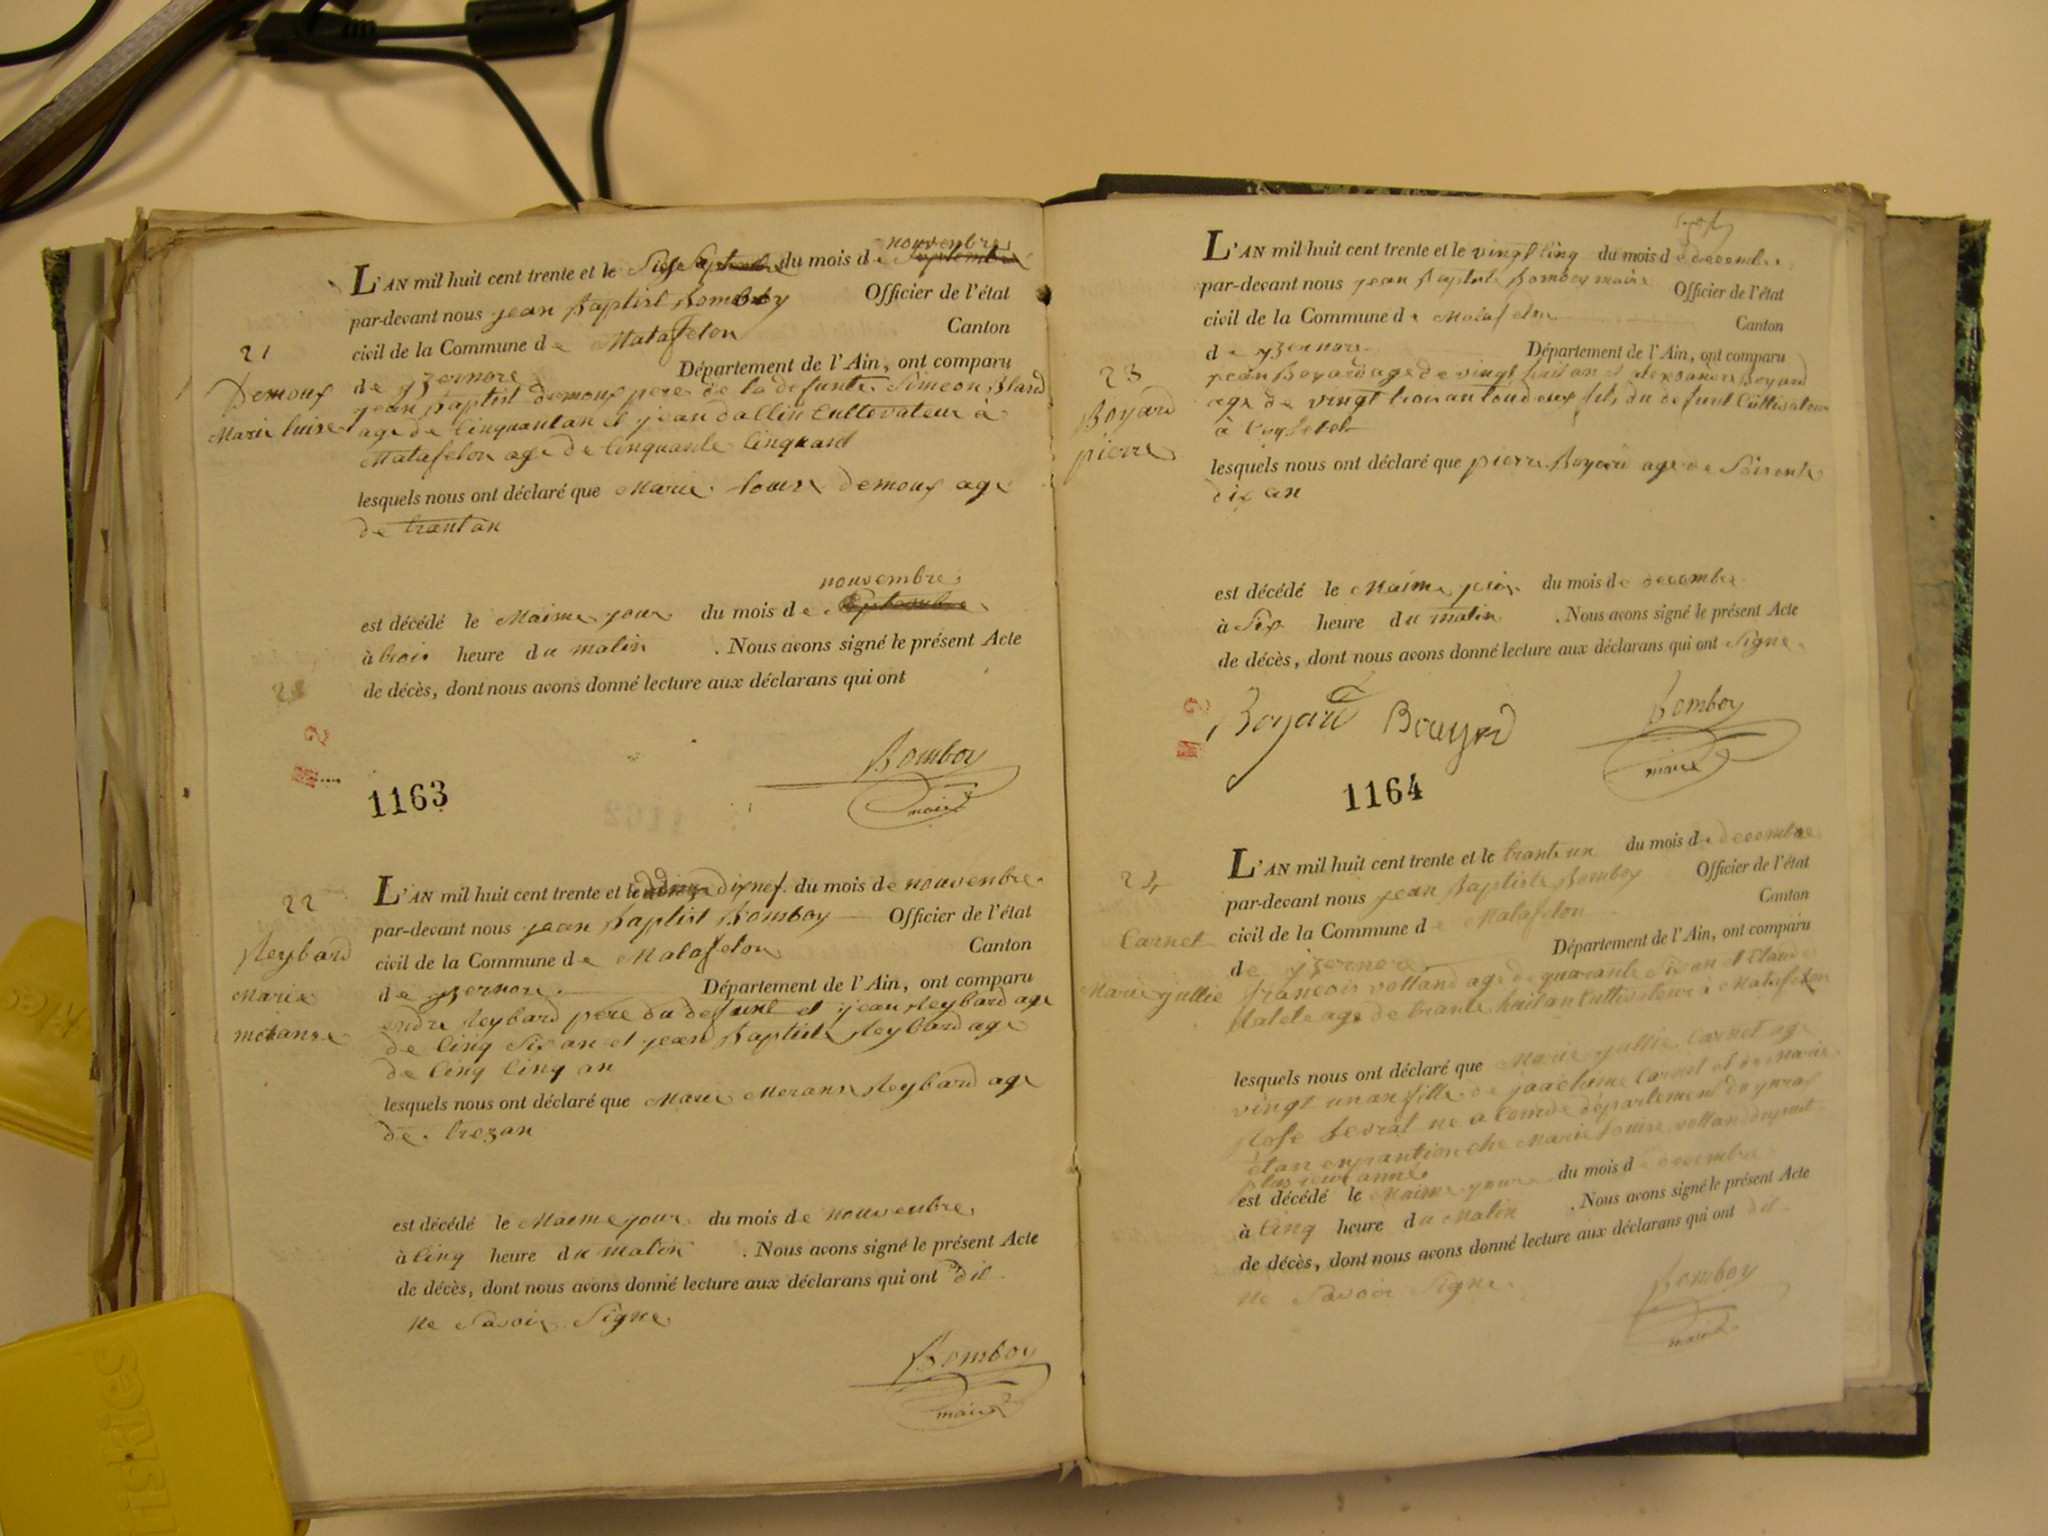 21
Demoux
Marie luise
L'AN mil huit cent trente et le du mois de nouvembre
par-devant nous jean Baptist Bomboy Officier de l'état
civil de la Commune de Matafelon Canton
de yzernore Département de l'Ain, ont comparu
jean Baptist demoux pere de la defunte Simeon
age de Cinquantan et jean dallin Cultevateur à
Matafelon age de Cinquante Cinq
lesquels nous ont déclaré que Marie louise demoux age
de trantan
est décédé le Maime jour du mois de nouvembre
à trois heure du matin . Nous avons signé le présent Acte
de décès, dont nous avons donné lecture aux déclarans qui ont
Bomboy
maire
1163
22
Reybard
Marie
merane
L'AN mil huit cent trente et le dixnef du mois de nouvenbre
par-devant nous jean Baptist Bomboy Officier de l'état
civil de la Commune de Matafelon Canton
de yzernore Département de l'Ain, ont comparu
andre Reybard pere du defunt et jean Reybard age
de Cinq Six an et jean Baptiste Reybard age
de Cinq Cinq an
lesquels nous ont déclaré que Marie Merann Reybard age
de trezan
est décédé le Maime jour du mois de nouvenbre
à Cinq heure du Matin . Nous avons signé le présent Acte
de décès, dont nous avons donné lecture aux déclarans qui ont dit
ne Savoir Signe
Bomboy
maire
23
Boyard
pierre
L'AN mil huit cent trente et le vingt Cinq du mois de decembre
par-devant nous jean Baptiste Bomboy maire Officier de l'état
civil de la Commune de Matafelon Canton
de yzernore Département de l'Ain, ont comparu
jean Boyard age de vingt huit an et Boyard
age de vingt trois an tou deux fils du defunt Cultivateur
à
lesquels nous ont déclaré que pierre Boyard age de Soisente
dix an
est décédé le Maime jour du mois de decembre
à Six heure du matin . Nous avons signé le présent Acte
de décès, dont nous avons donné lecture aux déclarans qui ont Signe
Boyard Bouyard Bomboy
maire
1164
24
Carnet
Marie jullie
L'AN mil huit cent trente et le trant un du mois de decembre
par-devant nous jean Baptiste Bomboy Officier de l'état
civil de la Commune de Matafelon Canton
de yzernore Département de l'Ain, ont comparu
francois volland age de quarante Six an et Claude
age de trante huit an Cultivateur à Matafelon
lesquels nous ont déclaré que Marie jullie Carnet age
vingt un an fille de Carnet et de marie
Rose ne a departement du juras
etan en che Marie louise volland
plusieur anne
est décédé le Maime jour du mois de decembre
à Cinq heure du Matin . Nous avons signé le présent Acte
de décès, dont nous avons donné lecture aux déclarans qui ont dit
ne Savoir Signe
Bomboy
maire